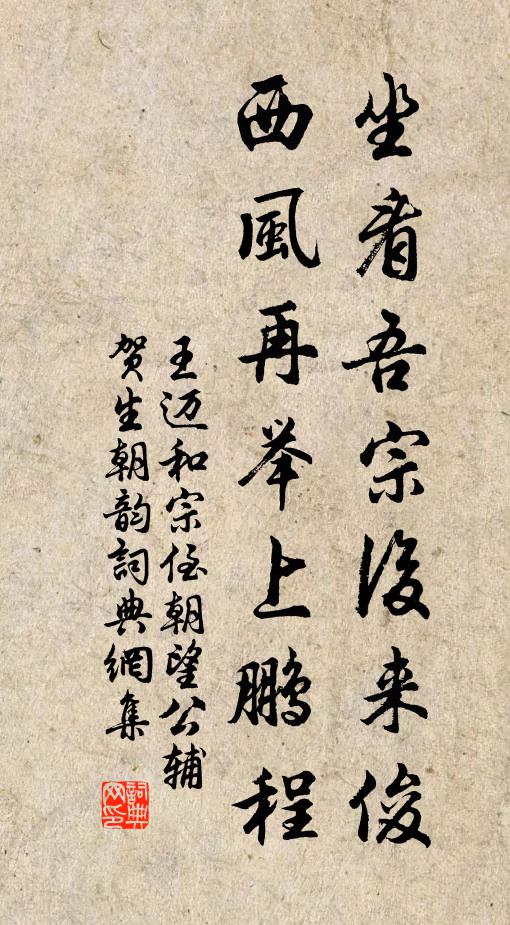 坐看吾宗後来俊
西風再举上鹏程
王迈和宗侄朝望公辅
贺生朝韵詞典網集
詞典网印